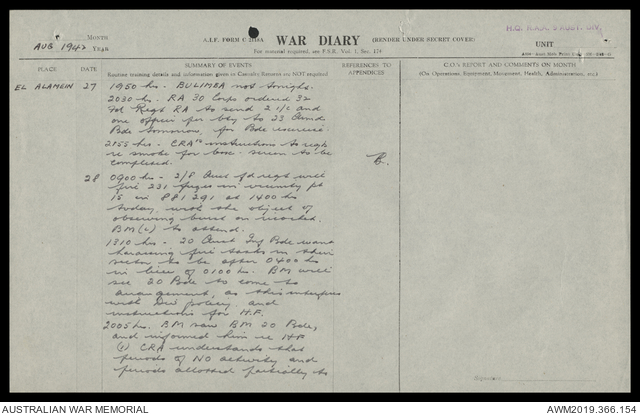 AUG 1942 MONTH YEAR
A.I.F. FORM C 2118A WAR DIARY (RENDER UNDER SECRET COVER)
For material required, see F.S.R. Vol. 1, Sec. 174
UNIT
PLACE DATE SUMMARY OF EVENTS REFERENCES TO APPENDICES C.O's REPORT AND COMMENTS ON MONTH
Routine training details and information given in Casualty Returns are NOT required
(On Operations, Equipment, Movement, Health, Administration, etc.)
EL ALAMEIN 27 1950 hrs. BULIMBA not tonight.
2030 hrs. RA 30 Corps ordered 32
Fd Regt RA to send 2 i/c and
one officer per bty to 23 Armd
Bde tomorrow, for Bde exercise
2155 hrs. CRA instructions to regts
re smoke for box. screen to be
completed.
28 0900 hrs - 2/8 Aust fd regt will
fire 231 fuzes in vicinity pt
15 in 881291 at 1400 hrs
today, with the object of
observing burst on
BM(L) to attend.
1310 hrs - 20 Aust Inf Bde want
harassing fire tasks in their
sector to be after 0400 hrs
in lieu of 0100 hrs. BM will
see 20 Bde to come to
arrangement, as this interferes
with Div policy and
instructions for H.F.
2005 hrs. BM saw BM 20 Bde,
and informed him re HF
(1) CRA understands that
periods of NO activity and
periods allotted partially to
Signature
AUSTRALIAN WAR MEMORIAL
AWM2019.366.154